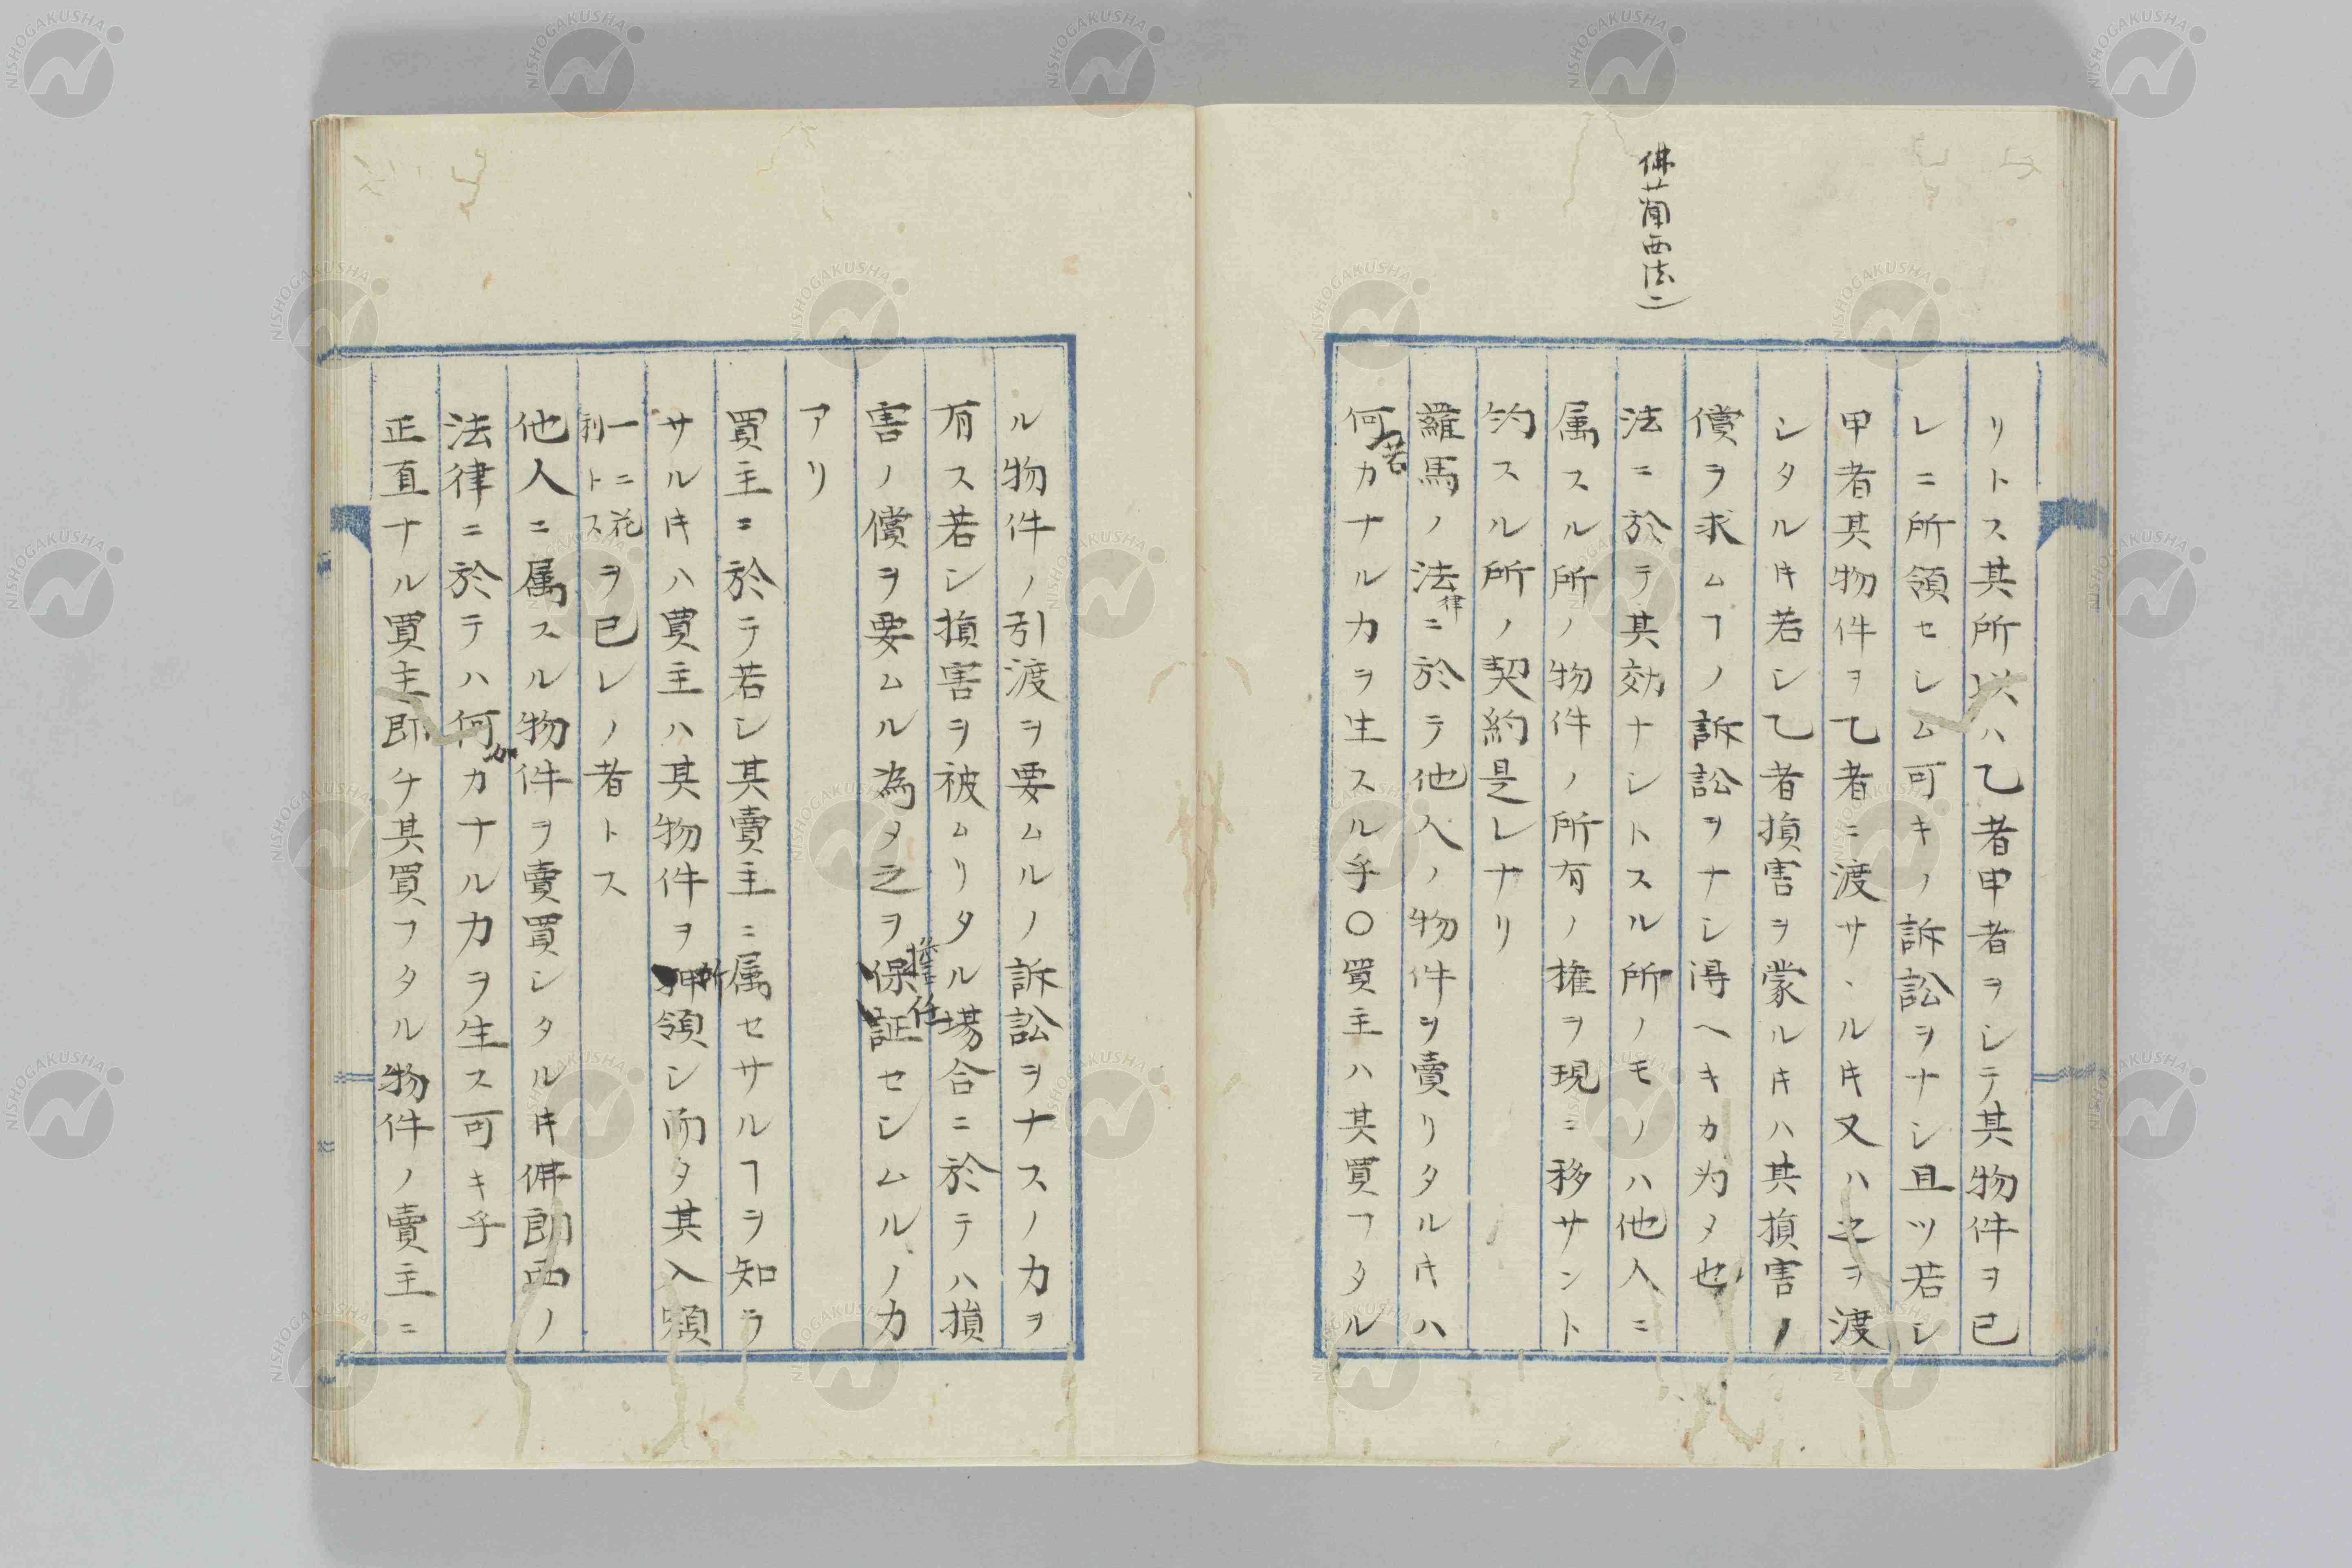 佛蘭西法ニ
リトス其所以ハ乙者甲者ヲシテ其物件ヲ已
レニ所領セシム可キノ訴訟ヲナシ且ツ若シ
甲者其物件ヲ乙者ニ渡サヽル𪜈又ハ之ヲ渡
シタル𪜈若シ乙者損害ヲ蒙ル𪜈ハ其損害ノ
償ヲ求ムヿノ訴訟ヲナシ得ヘキカ为メ也
法ニ於テ其効ナシトスル所ノモノハ他人ニ
属スル所ノ物件ノ所有ノ権ヲ現ニ移サント
約スル所ノ契約是レナリ
羅馬ノ法律ニ於テ他人ノ物件ヲ賣リタル𪜈ハ
何若カナルカヲ生スル乎〇買主ハ其買フタル
ル物件ノ引渡ヲ要ムルノ訴訟ヲナスノカヲ
有ス若シ損害ヲ被ムリタル場合ニ於テハ損
害ノ償ヲ要ムル為メ之ヲ保証セシムルノカ
擔任
アリ
買主ニ於テ若シ其賣主ニ属セサルヿヲ知ラ
サル𪜈ハ買主ハ其物件ヲ所領シ而タ其入額
一ニ花
利トス
ヲ已レノ者トス
他人ニ属スル物件ヲ賣買シタル𪜈佛郎西ノ
法律ニ於テハ何如カナル力ヲ生ス可キ乎
正直ナル買主即チ其買フタル物件ノ賣主ニ
NISHOGAKUSHA